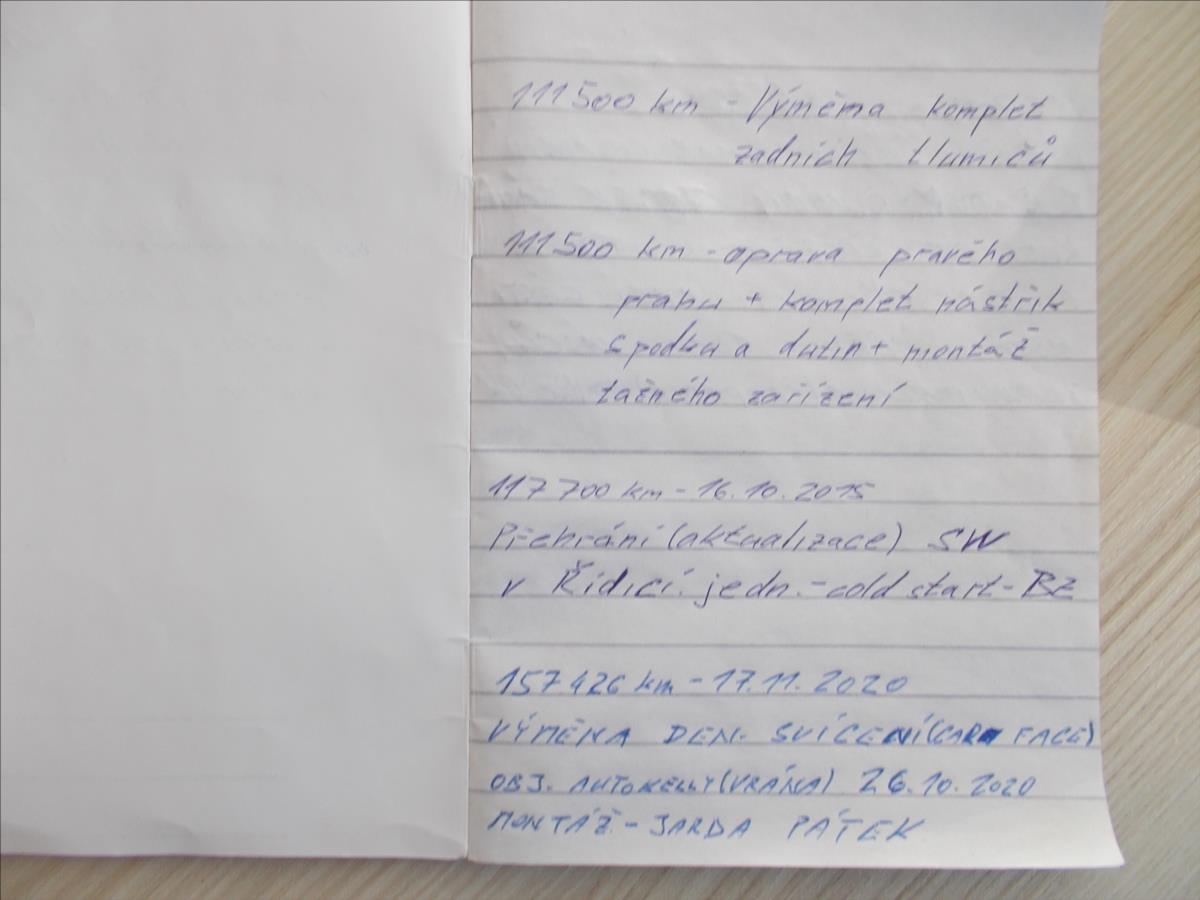 111500 km - Výměna komplet
zadních tlumičů
111500 km - oprava pravého
prahu + komplet nástřik
spodku a dutin + montáž
tažného zařízení
117 700 km - 16.10.2015
Přehrání (aktualizace) SW
v Řídící jedn. - cold start - BZ
157 426 km - 17.11.2020
VÝMĚNA DEN. SVÍCENÍ (CAR FACE)
OBJ. AUTOKELLY (VRÁNA) 26.10.2020
MONTÁŽ - JARDA PÁTEK